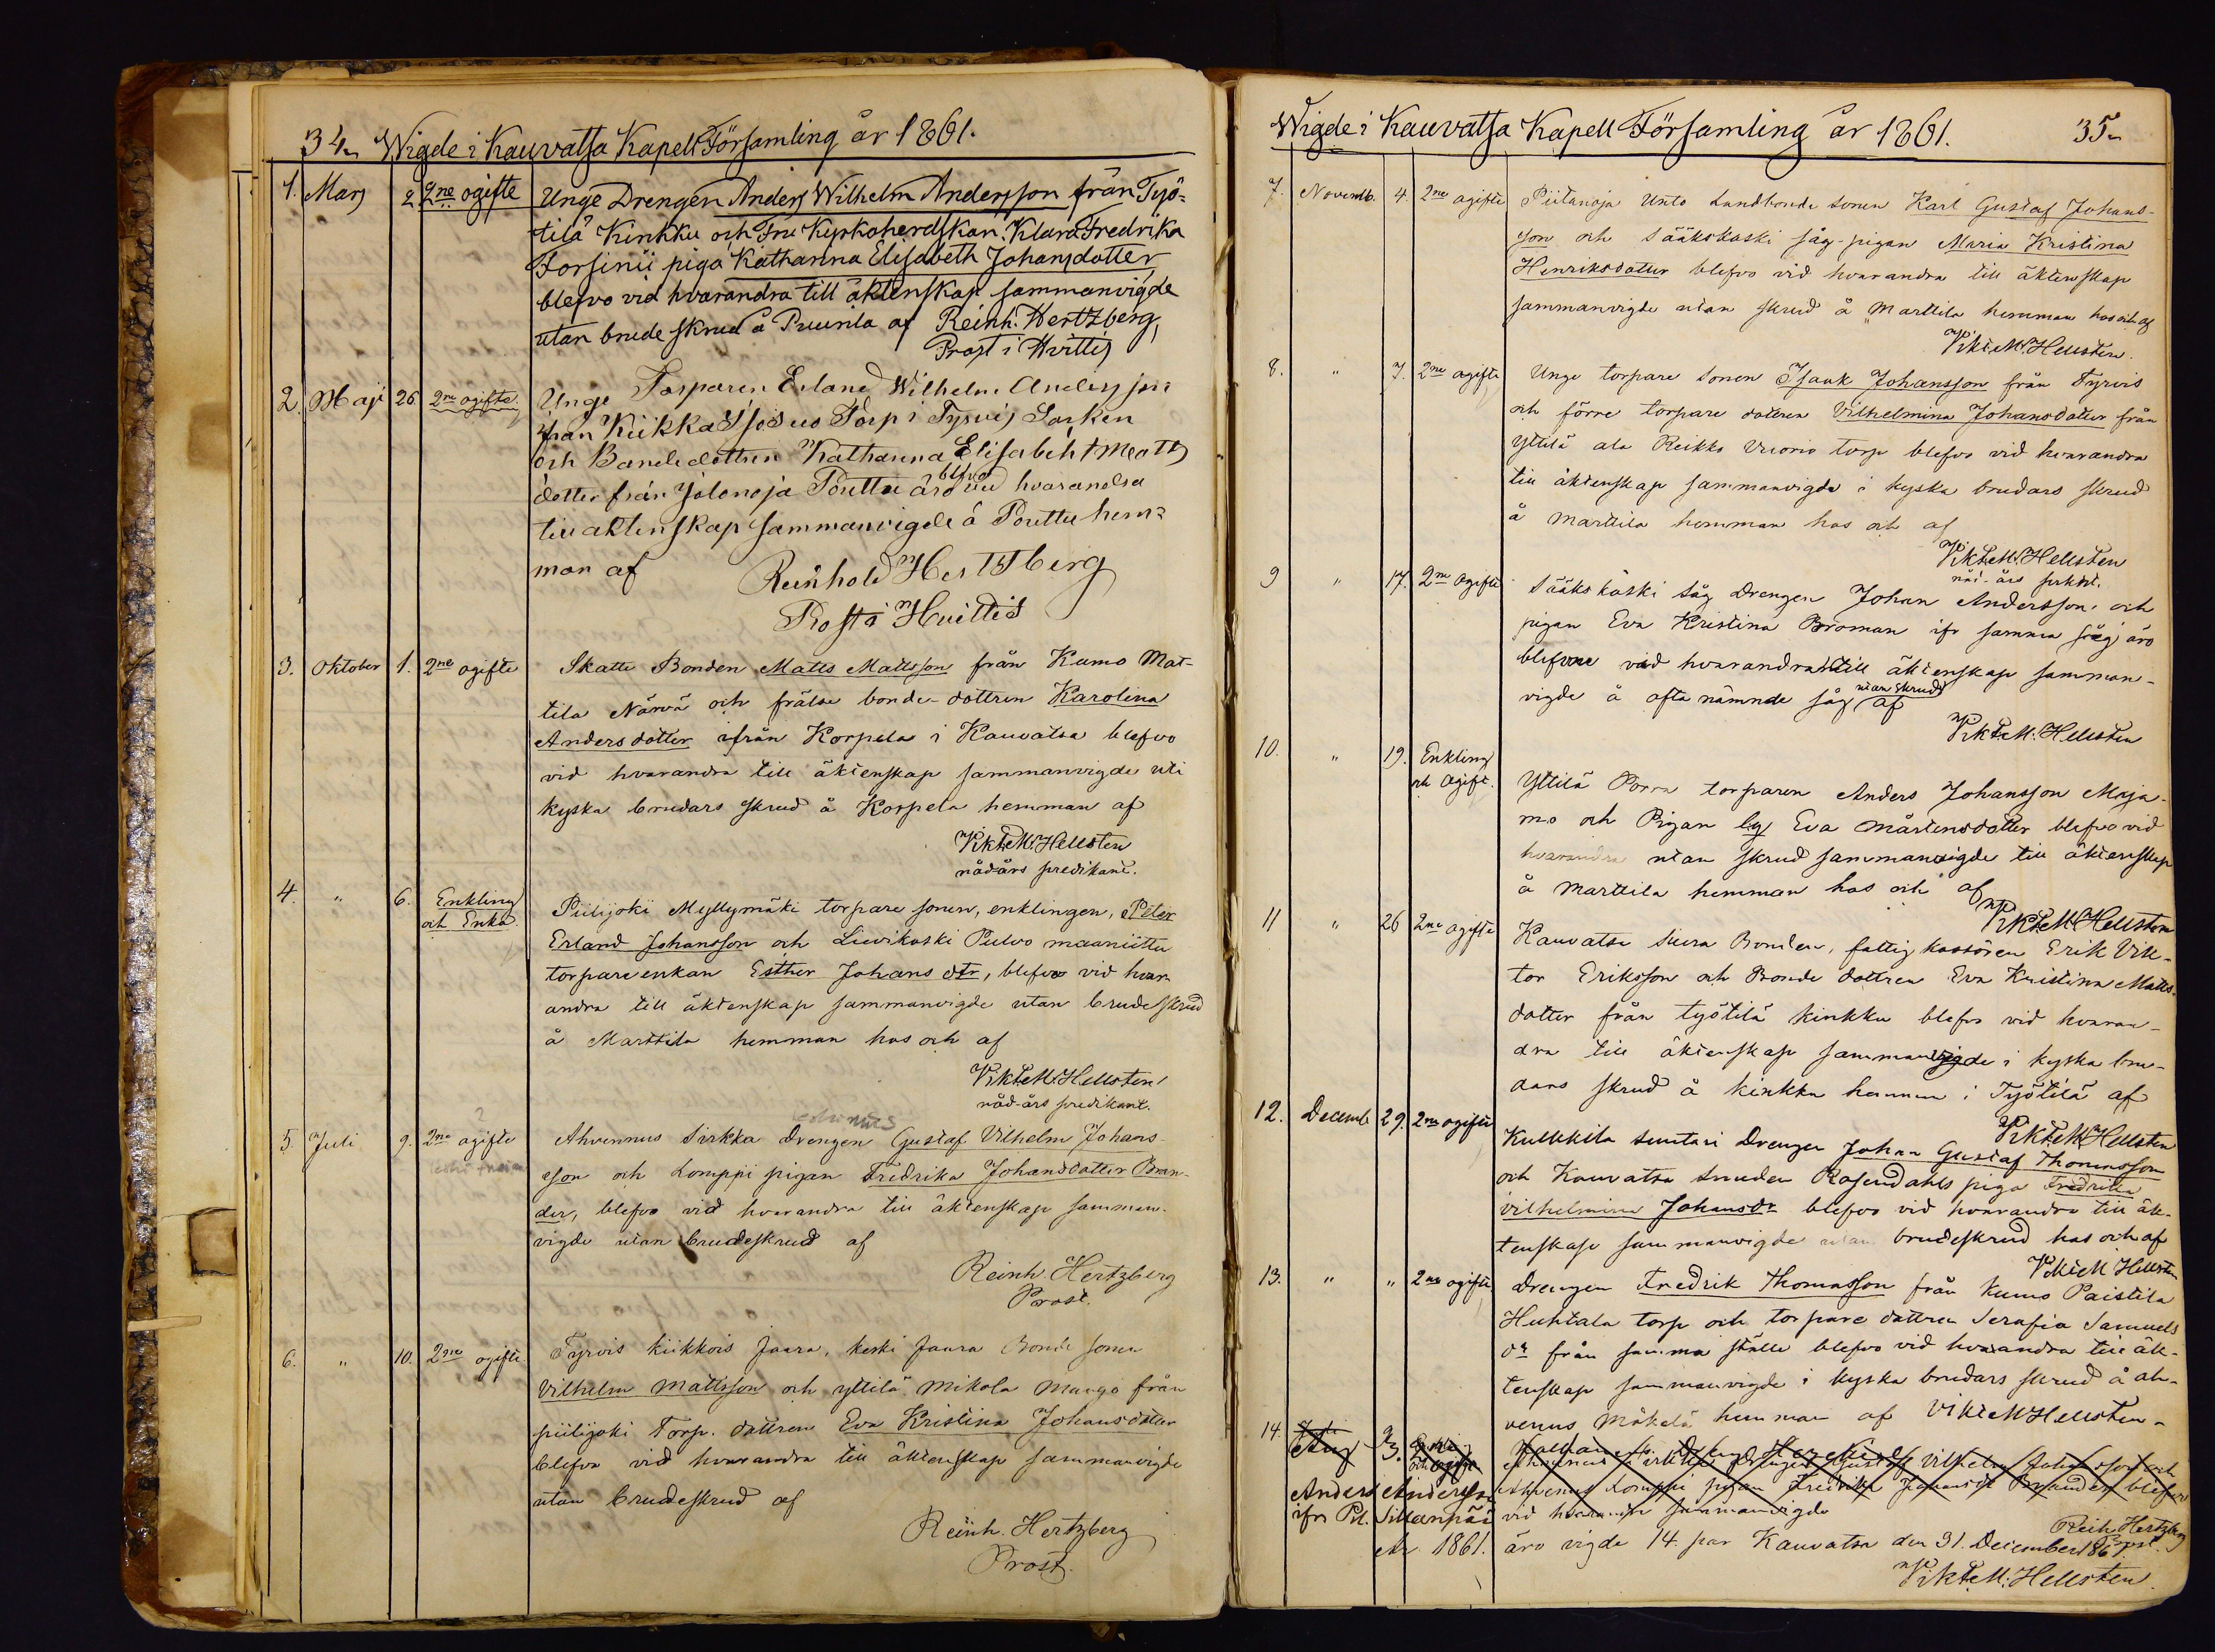 34. Wigde i Kauvatsa Kapell Församling år 1861.
1. Mars 2. 2ne ogifte Unge Drengen Anders Wilhelm Andersson från Työ-
tilä Kinkku och Fru Kyrkoherdskan Klara Fredrika
Forsinii piga Katharina Elisabeth Johansdotter
blefvo vid hvarandra till äktenskap sammanvigde
utan brude skrud å Puurila af Reinh. Hertzberg,
Prost i Hvittis
2. Maji 26 2ne ogifte Unge Torparen Erland Wilhelm Andersson
från Kiikka Torp i Tyrvis Socken
och Bondedottren Katharina Elisabeht Matts
dotter från Jalonoja Pouttu äro blefvo vid hvarandra
till äktenskap sammanvigde å Pouttu hem=
man af Reinhold Hertzberg
Prost i Huittis
3. Oktober 1. 2ne ogifte Skatte Bonden Matts Mattsson från Kumo Mat-
tila Närvä och frälse bonde-dottren Karolina
Andersdotter ifrån Korpela i Kauvatsa blefvo
vid hvarandra till äktenskap sammanvigde uti
kyska brudars skrud å Korpela hemman af
Vikt. M. Hellsten
nådårs predikant.
4. " 6. Enkling Piilijoki Myllymäki torpare sonen, enklingen, Peter
och Enka. Erland Johansson och Lievikoski Pulvo maaniittu
torpare enkan Esther Johans dtr, blefvo vid hvar-
andra till äktenskap sammanvigde utan brude skrud
å Marttila hemman hos och af
Vikt. M. Hellsten
nåd-års predikant.
5. Juli 9. 2ne ogifte Ahvennus Sirkka drengen Gustaf Vilhelm Johans-
son och Lomppi pigan Fredrika Johansdotter Bran-
der, blefvo vid hvarandra till äktenskap samman-
vigde utan brudeskrud af
Reinh. Hertzberg
Prost.
6. " 10. 2ne ogifte Tyrvis kiikkois Jaara, keski Jaara Bonde sonen
Vilhelm Mattsson och yttilä Mikola Maugo från
piilijoki Torp. dottren Eva Kristina Johansdotter
blefvo vid hvarandra till äktenskap sammanvigde
utan brudeskrud af
Reinh. Hertzberg
Prost.
Wigde i Kauvatsa Kapell Församling år 1861. 35.
7. Novemb. 4. 2ne ogifte Piitanoja Unto Landbonde sonen Karl Gustaf Johans-
son och Sääkskoski såg-pigan Maria Kristina
Henriksdotter blefvo vid hvarandra till äktenskap
sammanvigde utan skrud å Marttila hemman hos och af
Vikt. M. Hellsten.
8. " 7. 2ne ogifte Unge torpare sonen Isaak Johansson från Tyrvis
och förre torpare dottren Vilhelmina Johansdotter från
Yttilä ala Reikko Vuorio torp blefvo vid hvarandra
till äktenskap sammanvigde i kyska brudars skrud
å Marttila hemman hos och af
Vikt. M. Hellsten
nåd-års predikt.
9 " 17. 2ne ogifte Sääkskoski såg drengen Johan Andersson, och
pigan Eva Kristina Broman ifr samma såg äro
blefvne vid hvarandra till äktenskap samman-
vigde å ofta nämnde såg utan skrud af
Vikt. M. Hellsten
10. " 19. Enkling
och Ogift. Yttilä Porra torparen Anders Johansson Maja-
mo och Pigan Eva Mårtensdotter blefvo vid
hvarandra utan skrud sammanvigde till äktenskap
å Marttila hemman hos och af
Vikt. M. Hellsten
11 " 26 2ne ogifte Kauvatsa Siura Bonden, fattig kassören Erik Vik-
tor Eriksson och Bonde dottren Eva Kristina Matts-
dotter från Työtilä kinkku blefvo vid hvaran-
dra till äktenskap sammanvigde i kyska bru-
dars skrud å kinkku hemman i Työtilä af
Vikt. M. Hellsten
12. Decemb. 29. 2ne ogifte Kulkkila Suntari Drengen Johan Gustaf Thomasson
och Kauvatsa Smeden Rosendahls piga Fredrika
Vilhelmina Johansdr blefvo vid hvarandra till äk-
tenskap sammanvigde utan brudeskrud hos och af
Vikt. M. Hellsten
13. " " 2ne ogifte Drengen Fredrik Thomasson från Kumo Paistila
Huhtala torp och torpare dottren Serafia Samuels
dr från samma ställe blefvo vid hvarandra till äk-
tenskap sammanvigde i kyska brudars skrud å ah-
venus Mäkelä hemman af Vikt. M. Hellsten.
14. Gustaf Vilhelm Johansson och
Anders Andersson Ahvenus Lomppi pigan Fredrika Johansdr Brander blefvo
ifr Pil. Sillanpää vid hvarandra sammanvigde
Reinh. Hertzberg
Ar 1861. äro vigde 14. par Kauvatsa den 31. December 1861. Prost.
Vikt. M. Hellsten.